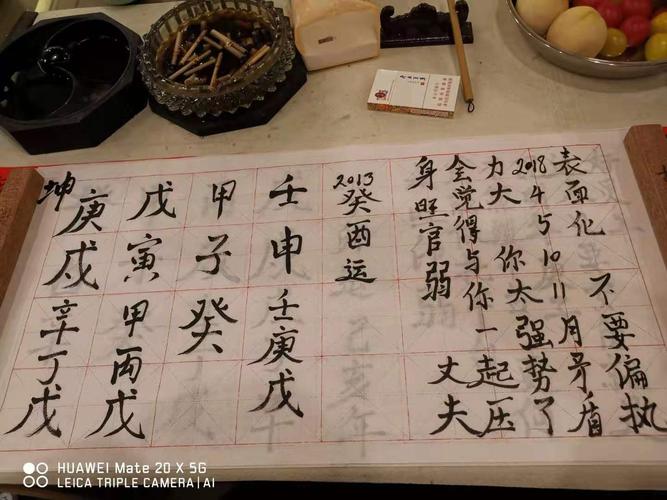 坤
庚戌辛丁戊
戊寅甲丙戊
甲子癸
壬申壬庚戊
2013癸酉运
身旺官弱 丈夫
会觉得与你一起压
力大 你太强势了
2018 4 5 10 11月矛盾
表面化 不要偏执
己亥年
HUAWEI Mate 20 X 5G
LEICA TRIPLE CAMERA | AI